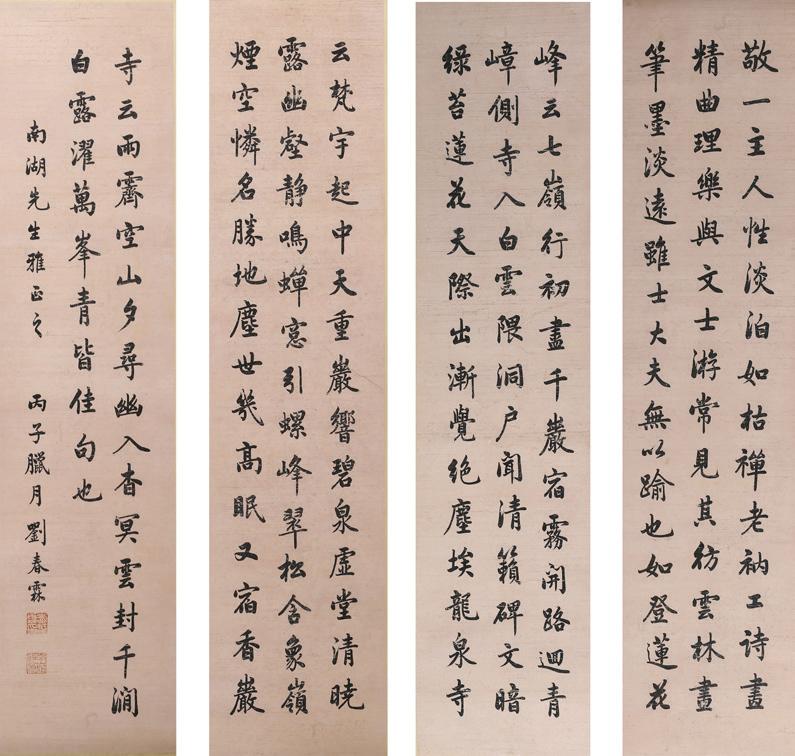 敬一主人性淡泊如枯禪老衲工詩畫
精曲理樂與文士游常見其彷雲林畫
筆墨淡遠雖士大夫無以踰也如登蓮花
峰云七嶺行初盡千巖宿霧開路迴青
嶂側寺入白雲隈洞户聞清籟碑文暗
綠苔蓮花天際出漸覺絕塵埃龍泉寺
云梵宇起中天重巖響碧泉虛堂清曉
露幽壑靜鳴蟬窓引螺峰翠松含象嶺
煙空憐名勝地塵世幾高眠又宿香巖
寺云雨霽空山夕尋幽入杳冥雲封千澗
白露濯萬峯青皆佳句也
南湖先生雅正之 丙子臘月劉春霖